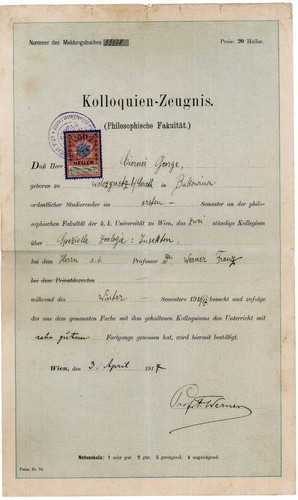 Nummer des Meldungsbuches
Preis: 20 Heller.
Kolloquien-Zeugnis.
(Philosophische Fakultät.)
50
HELLER
Daß Herr Ciornei George,
geboren zu in Bukowina
ordentlicher Studierender im ersten Semester an der philo-
sophischen Fakultät der k. k. Universität zu Wien, das zwei stündige Kollegium
über Spezielle Zoologie: Insekten
bei dem Herrn a.ö. Professor Dr. Werner Franz
bei dem Privatdozenten
während des Winter- Semesters 1916/17 besucht und zufolge
des aus dem genannten Fache mit ihm gehaltenen Kolloquiums den Unterricht mit
sehr gutem Fortgange genossen hat, wird hiermit bestätigt.
Wien, den 3. April 1917
Prof. F. Werner
Notenskala: 1 sehr gut. 2 gut. 3 genügend. 4 ungenügend.